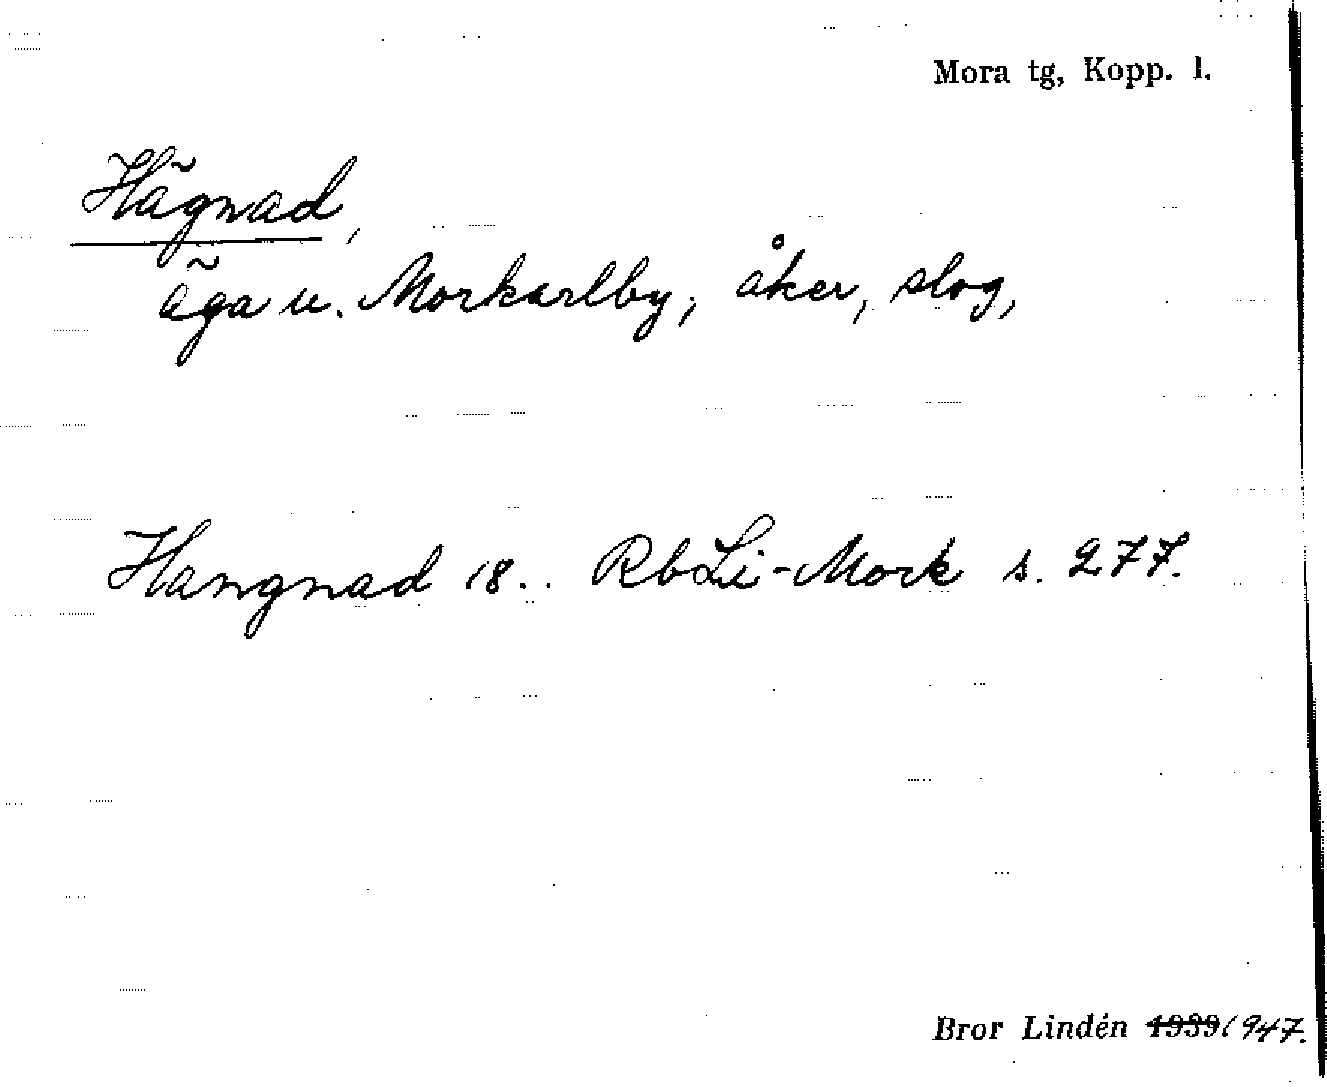 Mora tg, Kopp. l.
Hägnad,
äga u. Morkarlby; åker, slog,
Hangnad 18.. RbLi-Mork s. 277.
Bror Lindén 1939 1947.